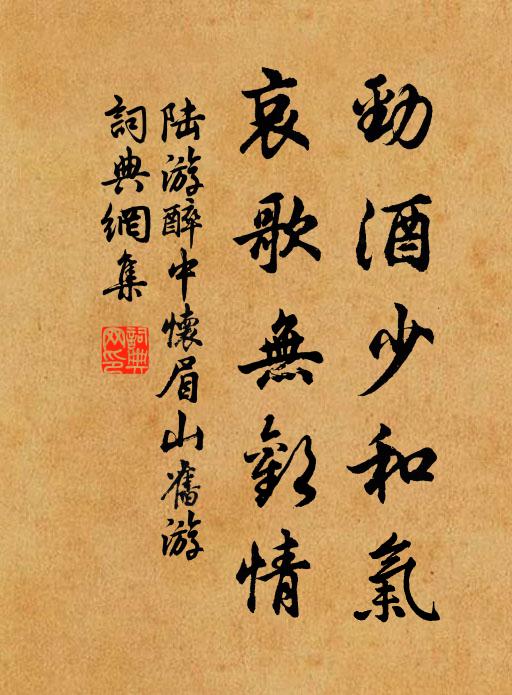 勁酒少和氣
哀歌無歡情
陆游醉中懷眉山舊游
詞典網集
詞典网印